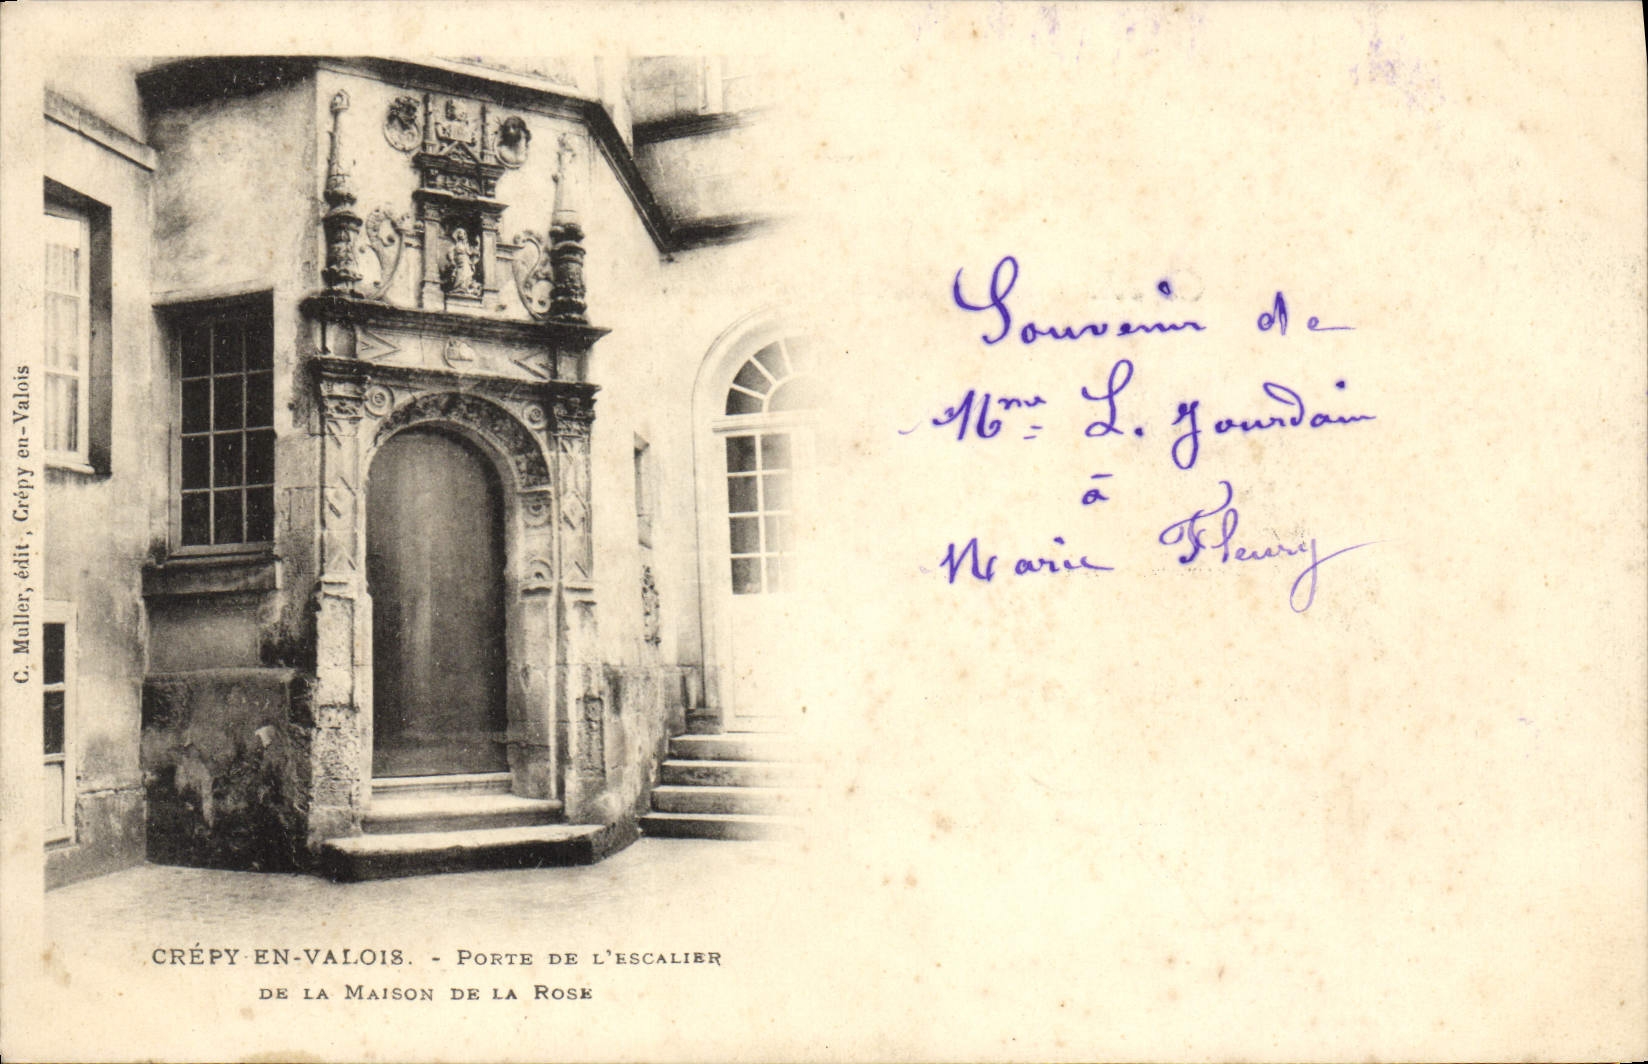 C. Muller, édit, Crépy en-Valois
CRÉPY-EN-VALOIS. - PORTE DE L'ESCALIER
DE LA MAISON DE LA ROSE
Souvenir de
Mme L. Jourdain
à
Marie Fleury